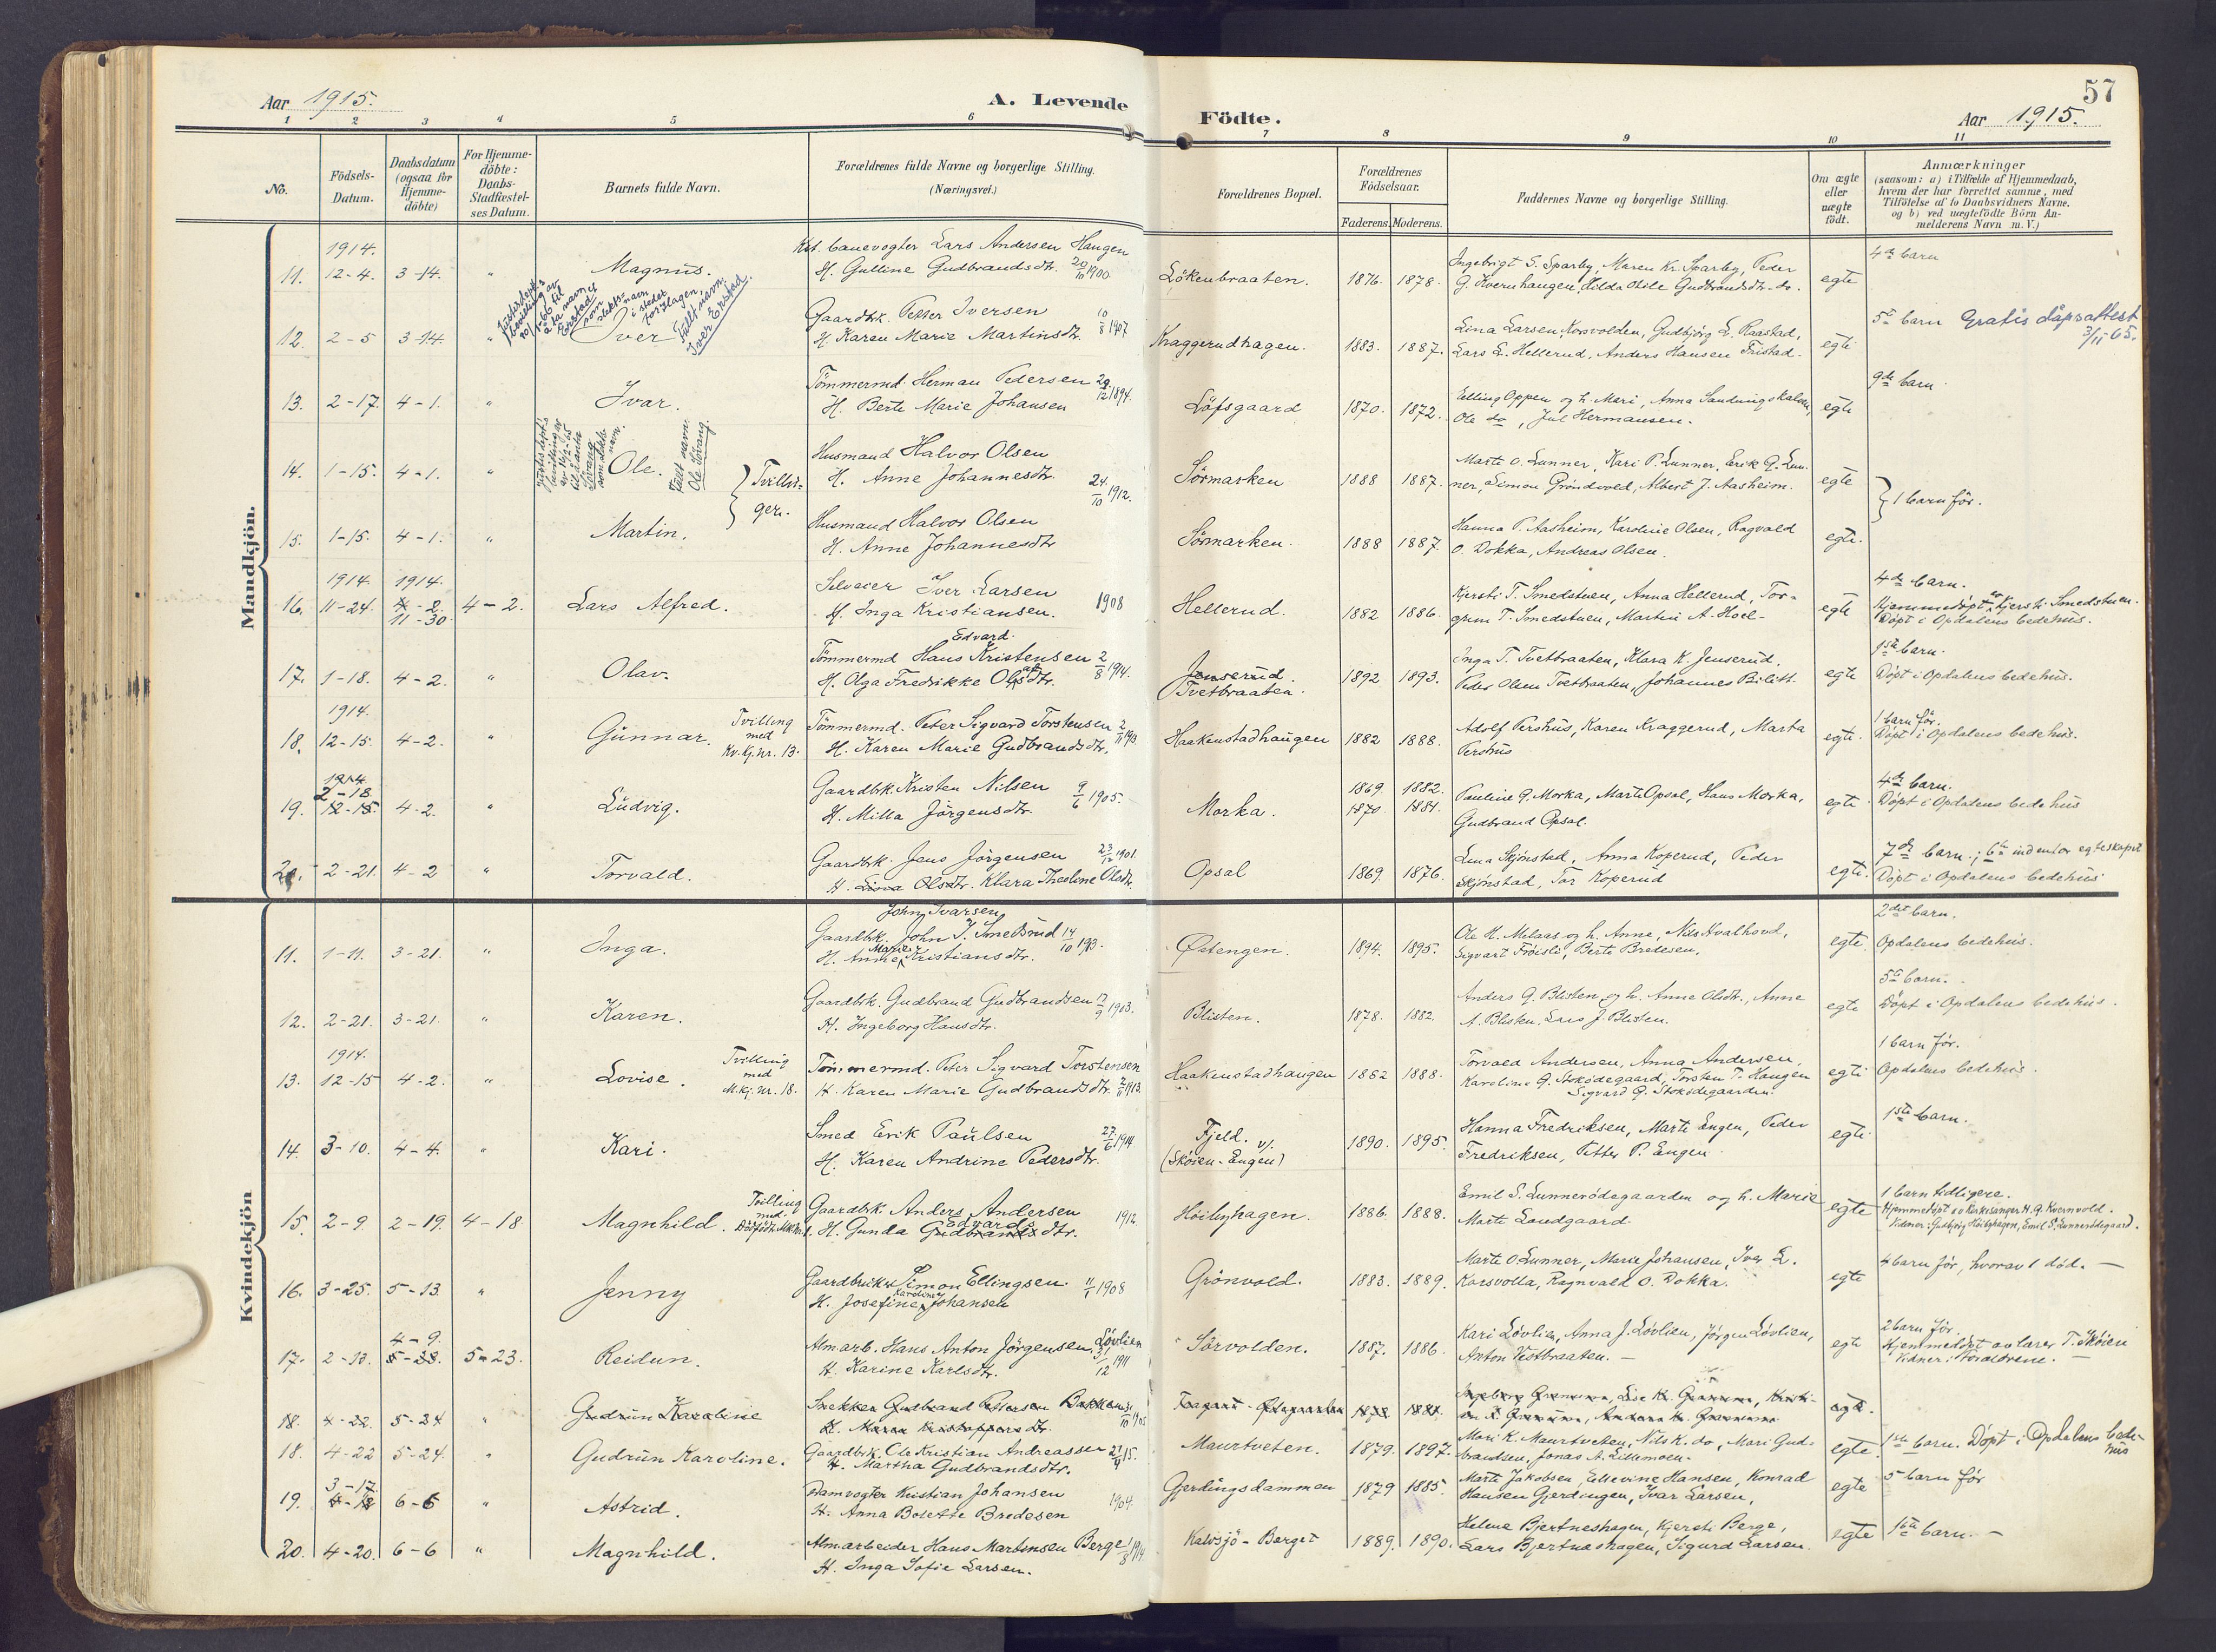 57
Aar 1915.
A. Levende
Födte.
Aar 1915.
1 2 3 4 5 6 7 8 9 10 11
No.
Födsels-
Datum.
Daabsdatum
(ogsaa for
Hjemme-
döbte)
For Hjemme-
döbte:
Daabs-
Stadfæstel-
ses Datum.
Barnets fulde Navn.
Forældrenes fulde Navne og borgerlige Stilling.
(Næringsvei.)
Forældrenes Bopæl.
Forældrenes
Födselsaar.
Faderens. Moderens.
Faddernes Navne og borgerlige Stilling.
Om ægte
eller
uægte
födt.
Anmærkninger
(saasom: a) i Tilfælde af Hjemmedaab,
hvem der har forrettet samme, med
Tilföielse af to Daabsvidners Navne.
og b) ved uægtefödte Börn An-
melderens Navn m. V.)
Mandkjön.
1914.
11. 12-4. 3-14. " Magnus.
banevogter Lars Andersen Haugen
H. Gulline Gudbrandsdtr. 20/10 1900
Lökenbraaten. 1876. 1878.
Ingebrigt S. Sparby, Maren Kr. Sparby, Peder
G. Kvernhaugen, Hilda Otile Gudbrandsdtr. do.
egte
4de barn
12. 2-5 3-14. " Iver
Fullt navn:
Iver Erstad.
Gaardbk. Petter Iversen
H. Karen Marie Martinsdtr. 10/8 1907
Kraggerudhagen. 1883. 1887.
Lina Larsen Korsvolden, Gudbjörg L. Raastad,
Lars L. Hellerud, Anders Hansen Tristad.
egte
5te barn Gratis dåpsattest
3/11-65.
13. 2-17. 4-1. " Ivar.
Tömmermd. Herman Pedersen
H. Berte Marie Johansen 29/12 1894.
Löfsgaard 1870. 1872.
Elling Oppen og h. Mari, Anna Sandungskalven,
Ole do, Jul Hermansen.
egte
9de barn.
14. 1-15. 4-1. " Ole.
Fullt navn:
Ole Sörvang.
Tvillin-
ger.
Husmand Halvor Olsen
H. Anne Johannesdtr. 24/10 1912.
Sörmarken 1888 1887.
Marte O. Lunner, Kari P. Lunner, Erik G. Lun-
ner, Simon Gröndvold, Albert J. Aasheim.
egte
1 barn för.
15. 1-15. 4-1. " Martin.
Husmand Halvor Olsen
H. Anne Johannesdtr
Sörmarken. 1888 1887.
Hanna P. Aasheim, Karoline Olsen, Ragvald
O. Dokka, Andreas Olsen.
egte.
1914. 1914.
16. 11-24. 4-2. 4-2. Lars Alfred.
11-30
Selveier Iver Larsen
H. Inga Kristiansen. 1908
Hellerud. 1882 1886.
Kjersti T. Smedstuen, Anna Hellerud, Tor-
grim T. Smedstuen, Martin A. Hoel-
egte
4de barn.
Hjemmedöpt av Kjersti Smedstuen.
Döpt i Opdalens bedehus.
17. 1-18. 4-2. " Olav.
Edvard
Tömmermd Hans Kristensen 2/8 1914.
H. Olga Fredrikke Olafsdtr.
Jenserud.
Tvetbraaten. 1892 1893.
Inga T. Tvetbraaten, Klara K. Jenserud.
Peder Olsen Tvetbraaten, Johannes Bilitt.
egte
1ste barn.
Döpt i Opdalens bedehus.
1914.
18. 12-15. 4-2. " Gunnar.
Tvilling
med
Kv. Kj. nr. 13.
Tömmermd. Peter Sigvard Torstensen
H. Karen Marie Gudbrandsdtr. 2/11 1913
Haakenstadhaugen 1882 1888.
Adolf Pershus, Karen Kraggerud, Marta
Pershus
egte.
1 barn för.
Döpt i Opdalens bedehus.
1914.
2-18
19. 12-15. 4-2. " Ludvig.
Gaardbk. Kristen Nilsen
H. Milla Jörgensdtr. 9/6 1905.
Morka. 1869. 1882.
1870 1881.
Pauline G. Morka, Marte Opsal, Hans Morka,
Gudbrand Opsal.
egte.
4de barn.
Döpt i Opdalens bedehus
20. 2-21. 4-2 " Torvald.
Gaardbk. Jens Jörgensen 23/12 1901.
H. Lina Olsdtr. Klara Theoline Olsdtr.
Opsal 1869. 1876.
Lina Skjönstad, Anna Koperud, Peder
Skjönstad, Tor Koperud
egte.
7de barn; 6te indenfor egteskapet
Döpt i Opdalens bedehus
Kvindekjön
John Ivarsen
11. 1-11. 3-21. " Inga.
Gaardbk. John I. Smedsrud 14/10 1913.
H. Anne Marie Kristiansdtr.
Østengen. 1894. 1895.
Ole H. Melaas og h. Anne, Nils Kvalhovd,
Sigvart Fröisli, Berte Bredesen.
egte.
2det barn.
Opdalens bedehus.
12. 2-21. 3-21. " Karen.
Gaardbk. Gudbrand Gudbrandsen
H. Ingeborg Hansdtr. 17/9 1903.
Blisten. 1878. 1882.
Anders G. Blisten og h. Anne Olsdtr., Anne
A. Blisten, Lars J. Blisten.
egte
5te barn.
Döpt i Opdalens bedehus.
1914.
13. 12-15 4-2. " Lovise.
Tvilling
med
M. Kj. nr. 18.
Tömmermd. Peter Sigvard Torstensen
H. Karen Marie Gudbrandsdtr. 2/11 1913.
Haakenstadhaugen 1882 1888.
Torvald Andersen, Anna Andersen,
Karoline G. Stoködegaard, Torsten T. Haugen
Sigvard G. Stoködegaarden.
egte
1 barn för.
Opdalens bedehus.
14. 3-10. 4-4. " Kari.
Smed Erik Paulsen
H. Karen Andrine Pedersdtr. 27/6 1914
Fjeld. v/.
(Skóien-Engen) 1890. 1895.
Hanna Fredriksen, Marte Engen, Peder
Fredriksen, Petter P. Engen
egte
1ste barn.
15. 2-9. 2-19. 4-18 Magnhild.
Tvilling
med
Gaardbk. Anders Andersen
H. Gunda Gudbrandsdtr. 1912.
Edvards
Höibyhagen. 1886. 1888.
Emil S. Lunnerödegaarden og h. Marie
Marte Sandgaard.
egte
1 barn tidligere.
Hjemmedöpt av Kirkesanger H. G. Kvernvold.
Vidner: Gudbjörg Höibyhagen, Emil S. Lunnerödegaard.
16. 3-25. 5-13. " Jenny
Gaardbruker Simon Ellingsen.
H. Josefine Karoline Johansen 11/1 1908
Grönvold. 1883. 1889.
Marte O. Lunner, Marie Johansen, Iver L.
Korsvolla, Ragnvald O. Dokka.
egte
4 barn för, hvorav 1 död.
4-9.
17. 2-13. 5-23. 5-23. Reidun.
Almarb. Hans Anton Jörgensen Lövlien
H. Karine Karlsdtr. 31/12 1911
Sörvolden. 1887. 1886.
Kari Lövlien, Anna J. Lövlien, Jörgen Lövlien,
Anton Vestbraaten. -
egte
2 barn för.
Hjemmedöpt av lærer T. Skóien
Vidner: Forældrene. -
18. 4-22. 5-24 " Gudrun Karoline
Snekker Gudbrand Pettersen Bakken
H. Maren Kristoffersdtr.
1878 1881.
egte.
18. 4-22 5-24. " Gudrun Karoline.
Gaardbk. Ole Kristian Andreassen
H. Martha Gudbrandsdtr. 21/4 15.
Maurtveten. 1879. 1897.
Mari K. Maurtveten, Nils K. do, Mari Gud-
brandsen, Jonas A. Lillemoen.
egte
1ste barn. Döpt i Opdalens bede-
hus
3-17.
19. 4-18 6-6 " Astrid.
Damvogter Kristian Johansen
H. Anna Bolette Bredesen 1904.
Gjerdingsdammen 1879 1885.
Marte Jakobsen, Ellevine Hansen, Konrad
Hansen Gjerdingen, Ivar Larsen,
egte
5 barn för
20. 4-20. 6-6 " Magnhild.
Almarbeider Hans Martinsen Berge
H. Inga Sofie Larsen. 1/8 1914
Kalvsjö-Berget 1889. 1890.
Helene Bjertneshagen, Kjersti Berge,
Lars Bjertneshagen, Sigurd Larsen.
egte
1ste barn. -